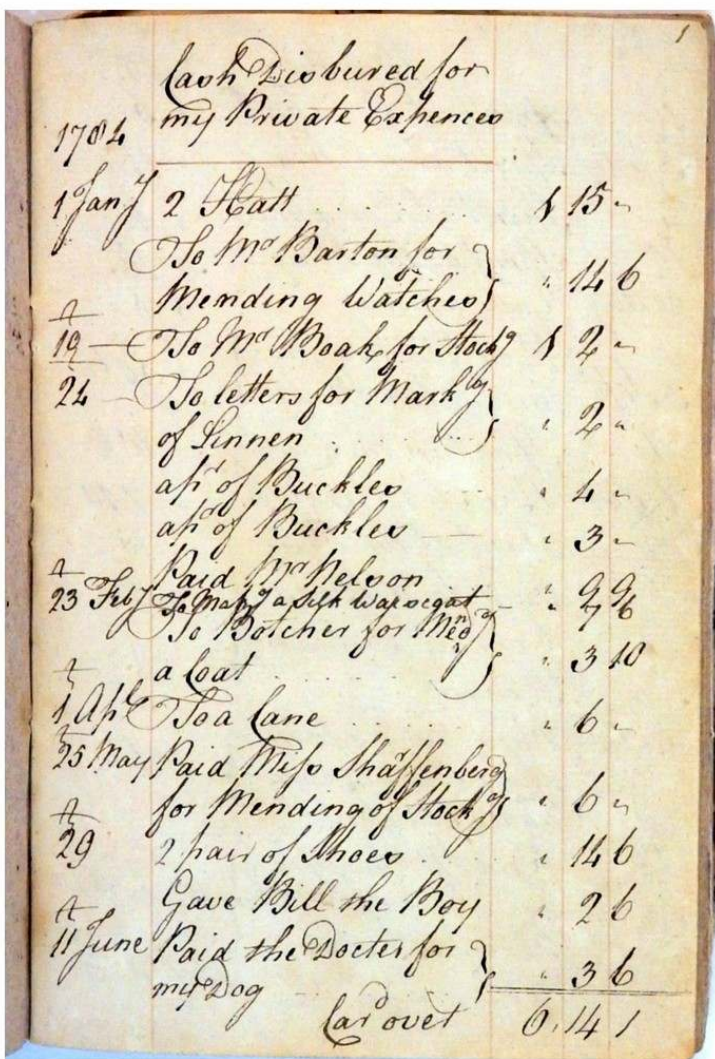 1
Cash Disbured for
my Private Expences
1784
1 Jany 2 Hatt 1 15 "
To Mr Barton for
Mending Watches " 14 6
19 — To Mr Boak for Stockg 1 2 "
24 — To letters for Markg
of Linnen " 2 "
a pr of Buckles " 4 "
a pr of Buckles — " 3 "
Paid Mr Nelson " 9 9
23 Feby To Makg a Silk — " 7 6
To Botcher for Mendg
a Coat " 3 10
1 Apl To a Cane " 6 "
25 May Paid Miss Shaffenberg
for Mending of Stockgs " 6 "
29 2 pair of Shoes " 14 6
Gave Bill the Boy " 2 6
11 June Paid the Docter for
my Dog " 3 6
Card over 6. 14 1